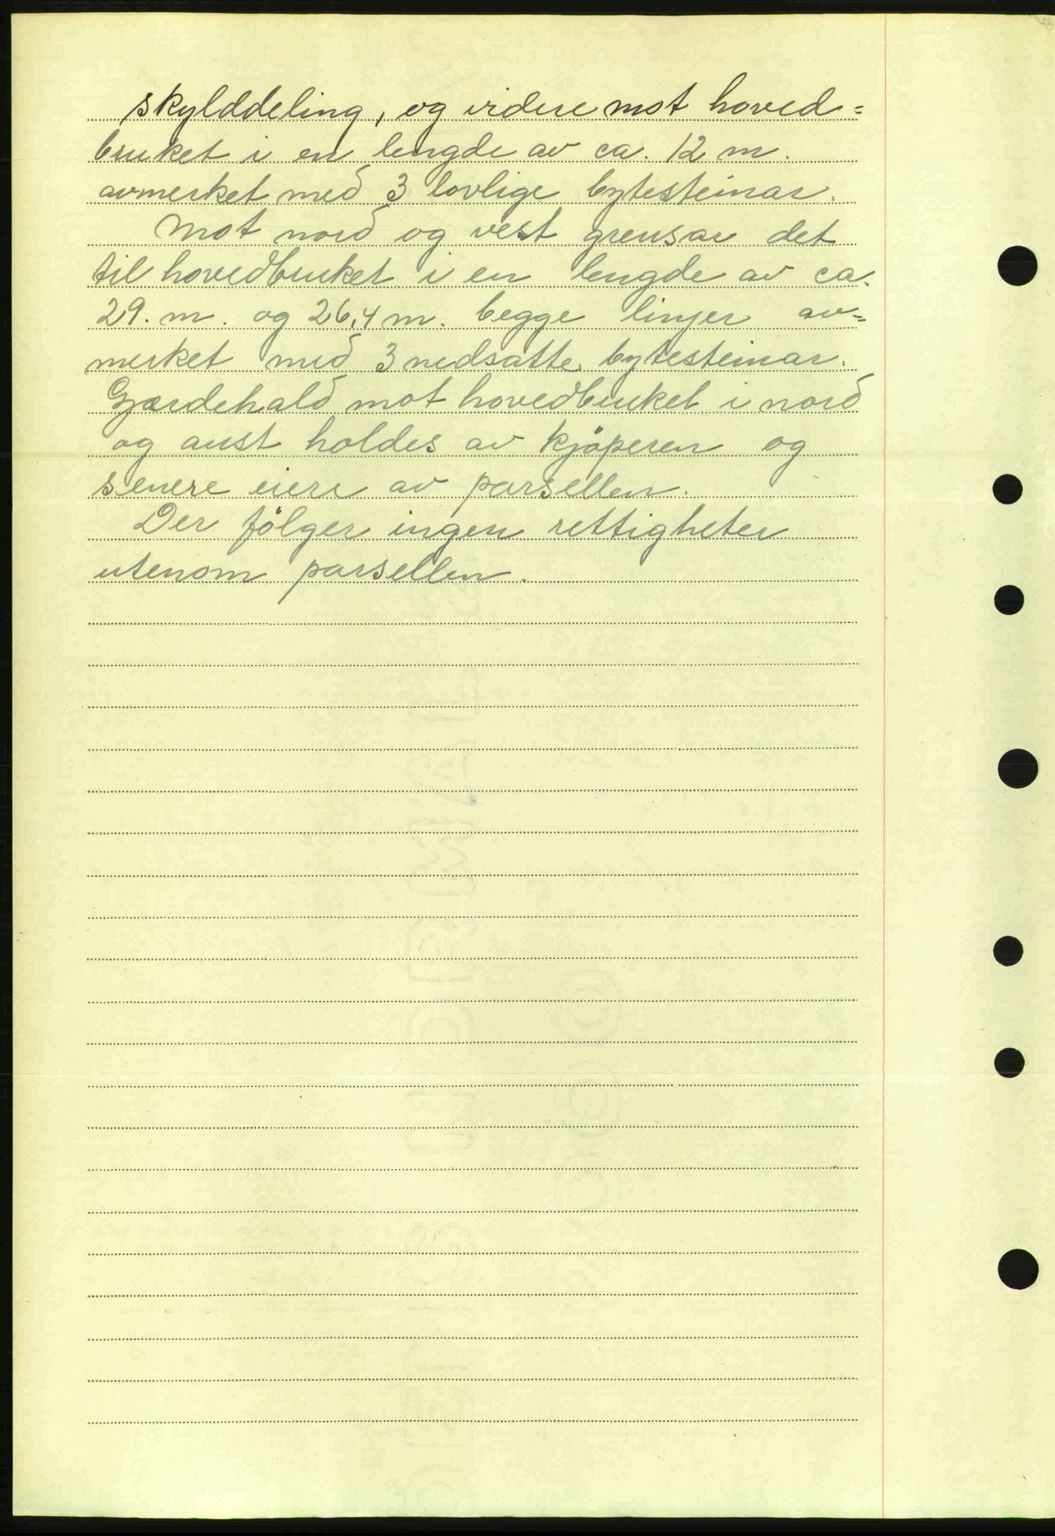 skylddeling, og videre mot hoved=
bruket i en lengde av ca. 12 m.
avmerket med 3 lovlige bytesteinar.
Mot nord og vest grensar det
til hovedbruket i en lengde av ca.
29. m. og 26,4 m. begge linjer av=
merket med 3 nedsatte bytesteinar.
Gjærdehald mot hovedbruket i nord
og aust holdes av kjøperen og
senere eiere av parsellen.
Der følger ingen rettigheter
utenom parsellen.